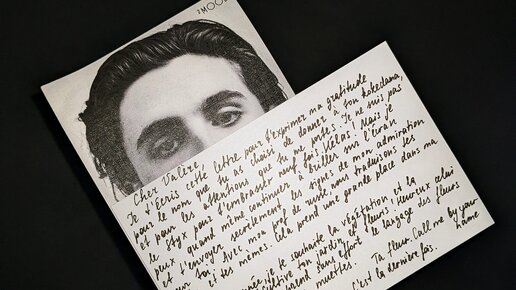 2MOO
Cher Valère,
Je t'écris cette lettre pour t'exprimer ma gratitude
pour le nom que tu as choisi de donner à ton kokedama,
et pour les attentions que tu me portes. Je ne suis pas
le styx pour t'embrasser neuf fois, hélas! Mais je
peux quand même continuer à briller sur l'écran
et t'envoyer secrètement les signes de mon admiration
pour toi. Avec mon de russe nous traduisons les
et tes mèmes. Cela prend une grande place dans ma
année, je te souhaite la végétation et la
cultive ton jardin et fleuris! Heureux celui
sans effort le langage des fleurs
muettes. Ta fleur. Call me by your
name
C'est la dernière fois.